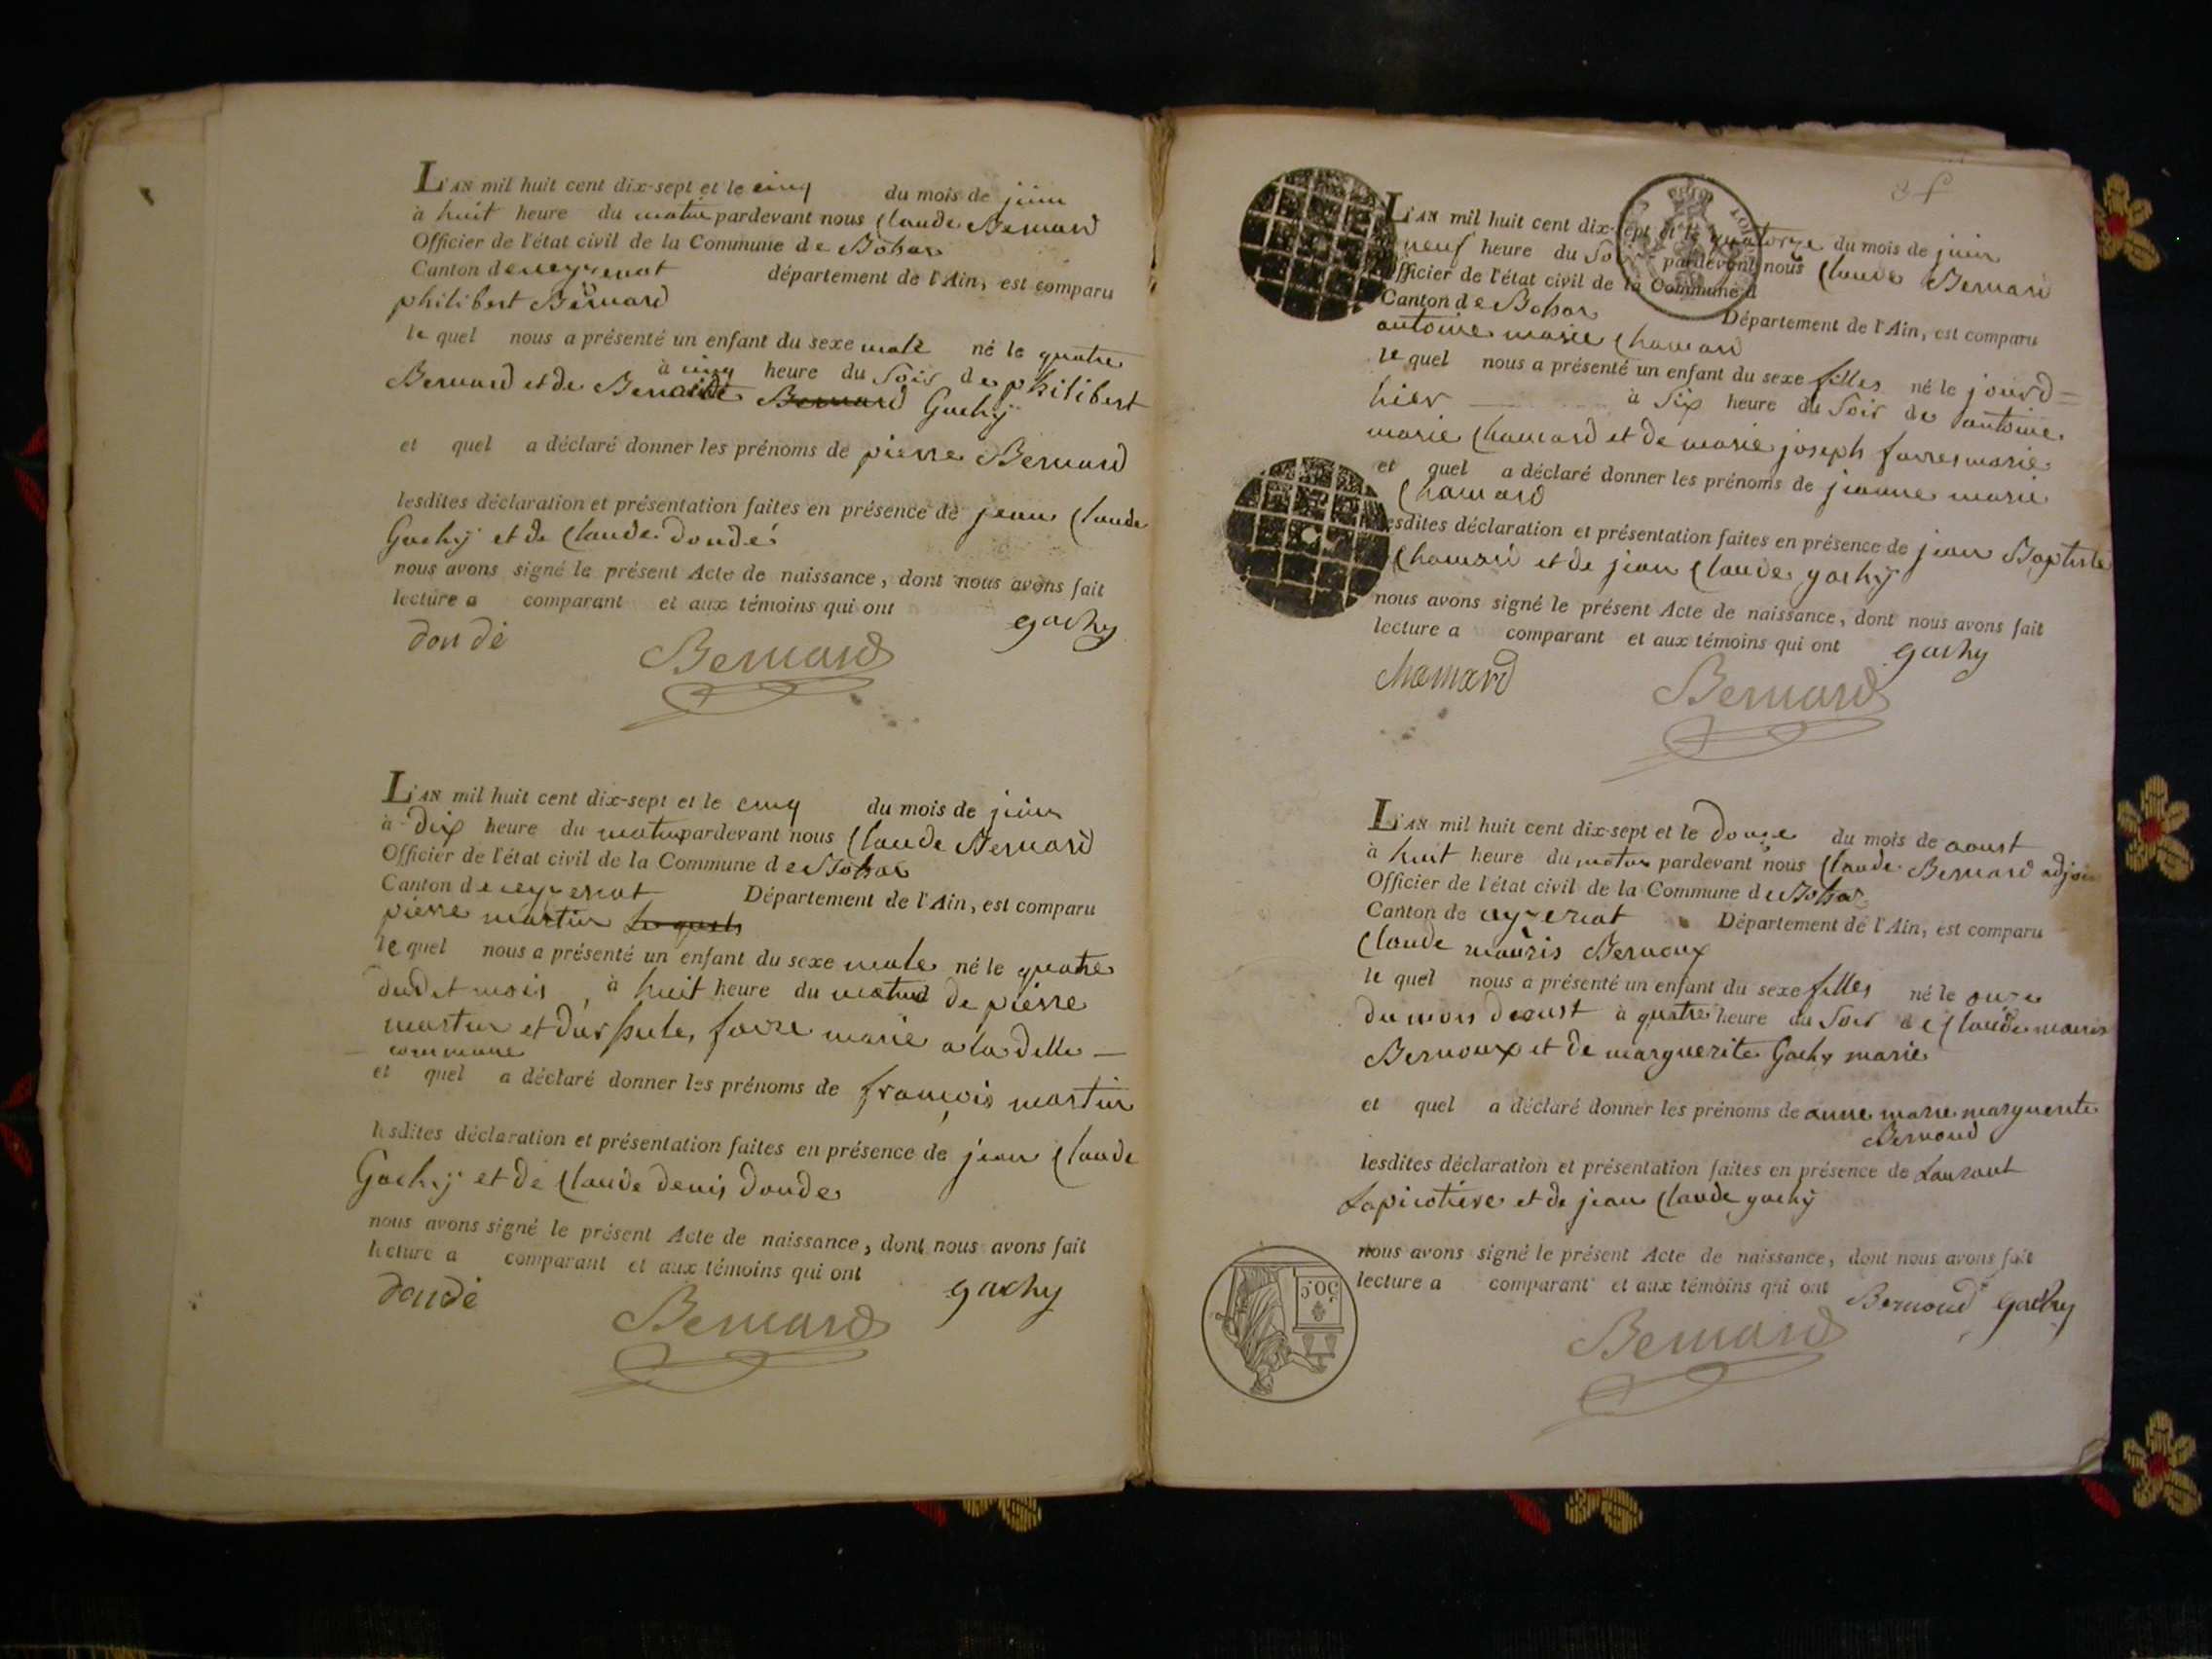 L'AN mil huit cent dix-sept et le cinq du mois de juin
à huit heure du matin pardevant nous Claude Bernard
Officier de l'état civil de la Commune de Bohas
Canton de ceyzeriat département de l'Ain, est comparu
philibert Bernard
le quel nous a présenté un enfant du sexe male né le quatre
à cinq heure du Soir de philibert
Bernard et de Benoite Bernard Gachÿ
et quel a déclaré donner les prénoms de pierre Bernard
lesdites déclaration et présentation faites en présence de jean Claude
Gachÿ et de Claude dondé
nous avons signé le présent Acte de naissance, dont nous avons fait
lecture a comparant et aux témoins qui ont
dondé Bernard gachy
L'AN mil huit cent dix-sept et le cinq du mois de juin
à dix heure du matin pardevant nous Claude Bernard
Officier de l'état civil de la Commune de Bohas
Canton de ceyzeriat Département de l'Ain, est comparu
pierre martin lequels
le quel nous a présenté un enfant du sexe male né le quatre
dudet mois à huit heure du matin de pierre
martin et d'ursule favre marié a la ditte
commune
et quel a déclaré donner les prénoms de françois martin
lesdites déclaration et présentation faites en présence de jean Claude
Gachÿ et de Claude denis donde
nous avons signé le présent Acte de naissance, dont nous avons fait
lecture a comparant et aux témoins qui ont
dondé Bernard gachy
L'AN mil huit cent dix-sept et le quatorze du mois de juin
neuf heure du Soir pardevant nous Claude Bernard
Officier de l'état civil de la Commune d
Canton de Bohas Département de l'Ain, est comparu
antoine marie Chamard
le quel nous a présenté un enfant du sexe filles né le jourd=
hier à Six heure du Soir de antoine
marie Chamard et de marie joseph favre marié
et quel a déclaré donner les prénoms de jeanne marie
Chamard
lesdites déclaration et présentation faites en présence de jean Baptiste
Chamard et de jean Claude gachÿ
nous avons signé le présent Acte de naissance, dont nous avons fait
lecture a comparant et aux témoins qui ont gachy
chamard Bernard
L'AN mil huit cent dix-sept et le douze du mois de aoust
à huit heure du matin pardevant nous Claude Bernard adjoin
Officier de l'état civil de la Commune de Bohas
Canton de ceyzeriat Département de l'Ain, est comparu
Claude mauris Bernoux
le quel nous a présenté un enfant du sexe filles né le onze
du mois daoust à quatre heure du Soir de Claude mauris
Bernoux et de marguerite Gachy marié
et quel a déclaré donner les prénoms de anne marie marguerite
Bernoud
lesdites déclaration et présentation faites en présence de Laurant
Lapirotiere et de jean Claude gachÿ
nous avons signé le présent Acte de naissance, dont nous avons fait
lecture a comparant et aux témoins qui ont Bernoud gachy
Bernard
50C